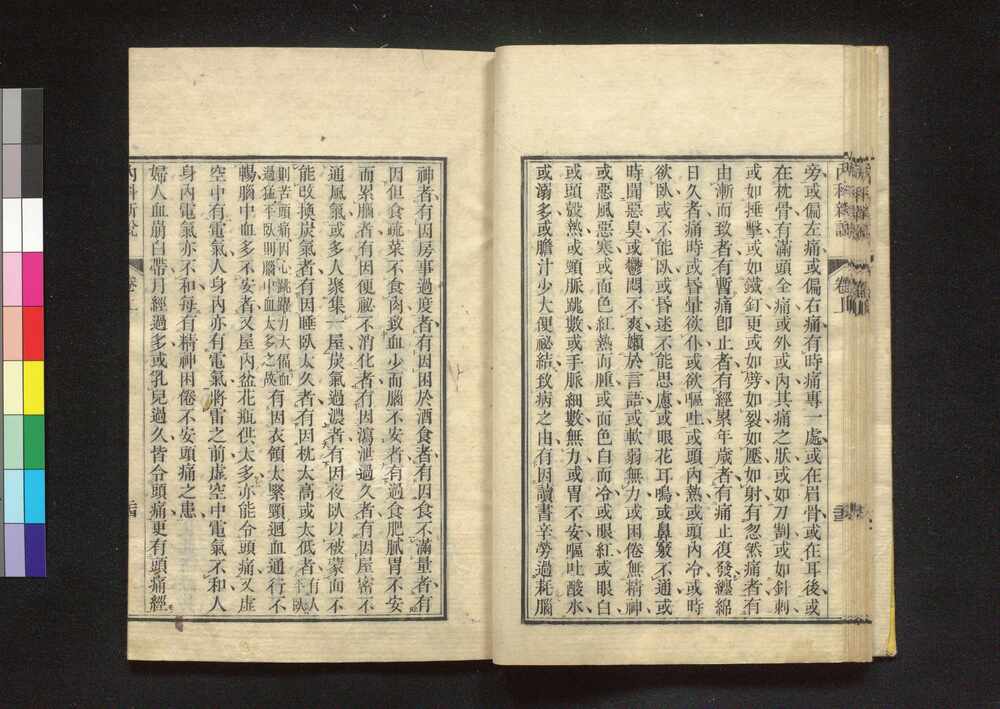 旁或偏左痛或偏右痛有時痛專一處或在眉骨或在耳後或
在枕骨有滿頭全痛或外或內其痛之狀或如刀剳或如針刺
或如捶擊或如鐵釘更或如劈如裂如壓如射有忽然痛者有
由漸而致者有暫痛卽止者有經累年歲者有痛止復發纏綿
日久者痛時或昏暈欲仆或欲嘔吐或頭內熱或頭內冷或時
欲臥或不能臥或昏迷不能思慮或眼花耳鳴或鼻竅不通或
時聞惡臭或鬱悶不爽嬾於言語或軟弱無力或困倦無精神
或惡風惡寒或面色紅熱而腫或面色白而冷或眼紅或眼白
或頭殼熱或頸脈跳數或手脈細數無力或胃不安嘔吐酸水
或溺多或膽汁少大便祕結致病之由有因讀書辛勞過耗腦
神者有因房事過度者有因困於酒食者有因食不滿量者有
因但食疏菜不食肉致血少而腦不安者有過食肥膩胃不安
而累腦者有因便祕不消化者有因瀉泄過久者有因屋密不
通風氣或多人聚集一屋炭氣過濃者有因夜臥以被蒙面不
能改換炭氣者有因睡臥太久者有因枕太高或太低者有人平臥
則苦頭痛因心跳躍力大偪血過猛平臥則腦中血太多之故有因衣領太緊頸迴血通行不
暢腦中血多不安者又屋內盆花瓶供太多亦能令頭痛又虛
空中有電氣人身內亦有電氣將雷之前虛空中電氣不和人
身內電氣亦不和每有精神困倦不安頭痛之患
婦人血崩白帶月經過多或乳兒過久皆令頭痛更有頭痛經
內科新說
卷上